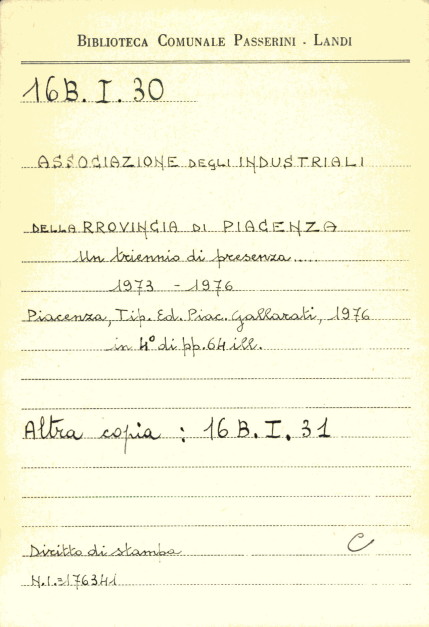 BIBLIOTECA COMUNALE PASSERINI - LANDI
16B. I. 30
ASSOCIAZIONE DEGLI INDUSTRIALI
DELLA RROVINCIA DI PIACENZA
Un triennio di presenza.....
1973 - 1976
Piacenza, Tip. Ed. Piac. Gallarati, 1976
in 4° di pp. 64 ill.
Altra copia : 16 B. I. 31
Diritto di stampa C
N.I.=176341